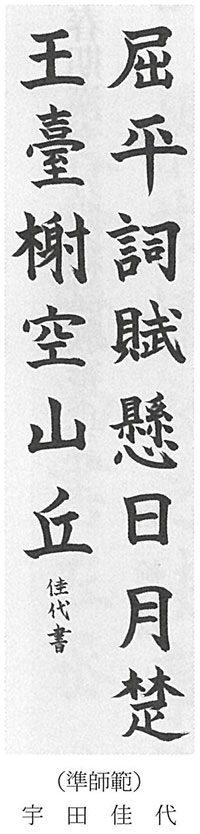 屈平詞賦懸日月楚
王臺榭空山丘
佳代書
(準師範)
宇田佳代